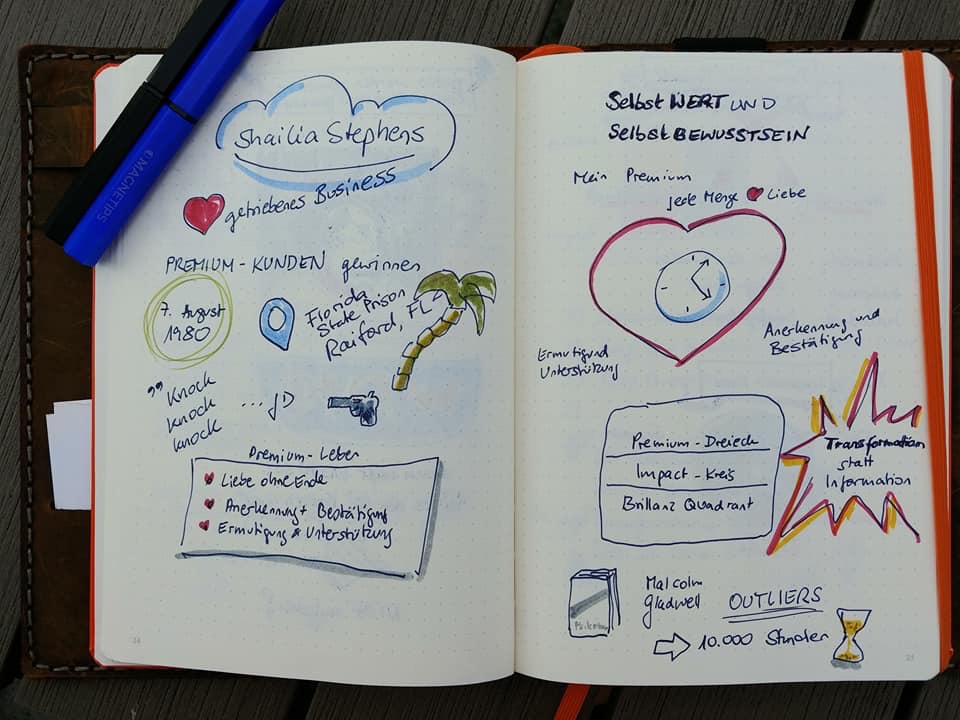 MAGNETIPS
Shailia Stephens
getriebenes Business
PREMIUM-KUNDEN gewinnen
7. August
1980
Florida
State Prison
Raiford, FL
"Knock
knock
knock
...
Premium-Leben
Liebe ohne Ende
Anerkennung + Bestätigung
Ermutigung & Unterstützung
24
Selbst WERT UND
Selbst BEWUSSTSEIN
Mein Premium
jede Menge Liebe
Ermutigung und
Unterstützung
Anerkennung und
Bestätigung
Premium-Dreieck
Impact-Kreis
Brillanz Quadrant
Transformation
statt
Information
Malcolm
Gladwell OUTLIERS
10.000 Stunden
25